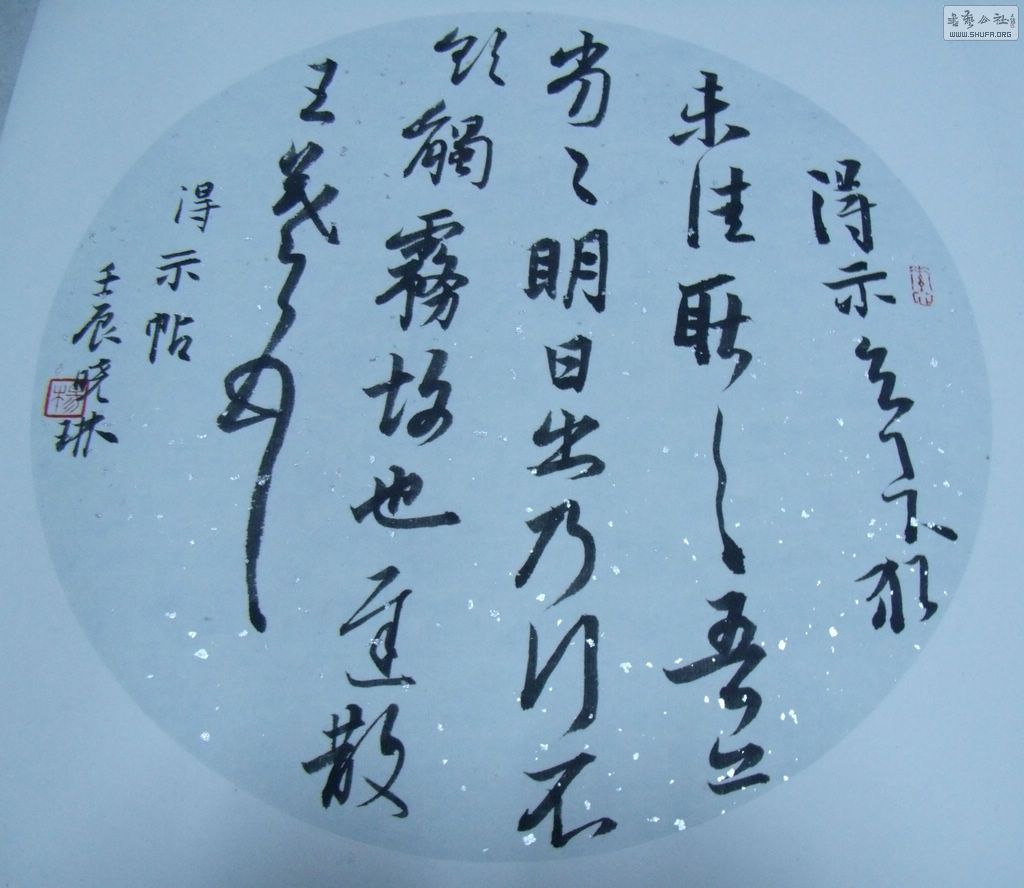 書藝公社
WWW.SHUFA.ORG
得示知足下猶
未佳耿々吾亦
劣々明日出乃行不
欲觸霧故也遲散
王羲之頓首
得示帖
壬辰晓琳
楊